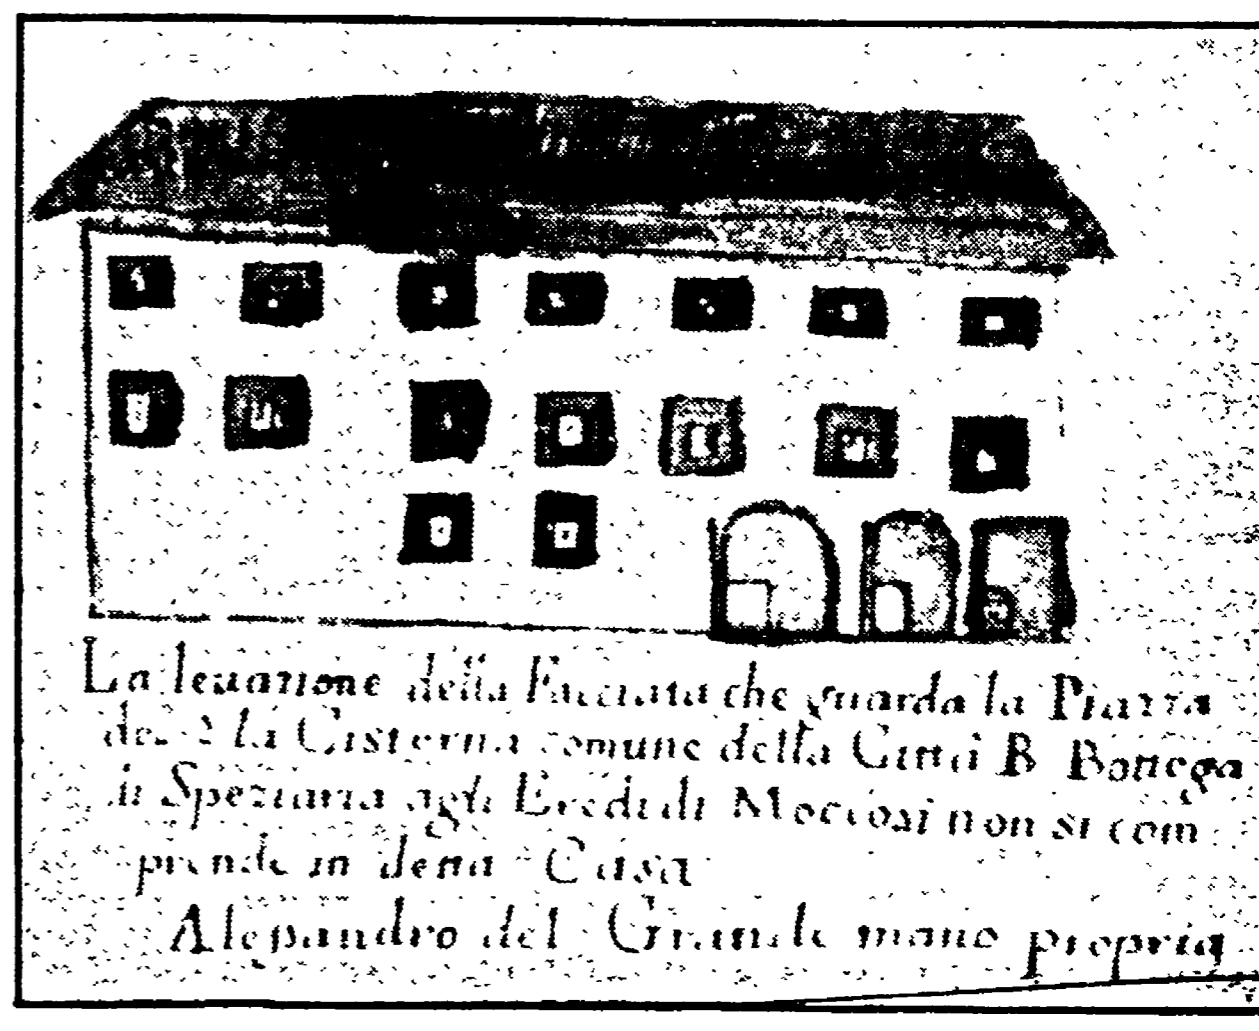 La leuazione della Facciata che guarda la Piazza
la Cisterna comune della Città B Bottega
di Speziaria agli Eredi di non si com
prende in detta Casa
Alesandro del Grande mano propria